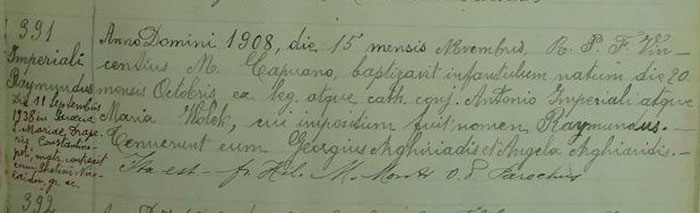 391
Imperiali
Raymundus
Die 11 Septembris
1938 in
S. Mariae Drape-
ris Constantino-
poli, matr. 
392
Anno Domini 1908, die 15 mensis Novembris, R. P. F. Vin-
centius M. Capuano, baptizavit infantulum natum die 20
mensis Octobris, ex leg. atque cath. conj. Antonio Imperiali atque
Maria Wolek, cui impositum fuit nomen Raymundus. —
Tenuerunt eum Georgius Arghiriadis et Angela Arghiaridis. —
Ita est — fr. M. O. P. Parochus